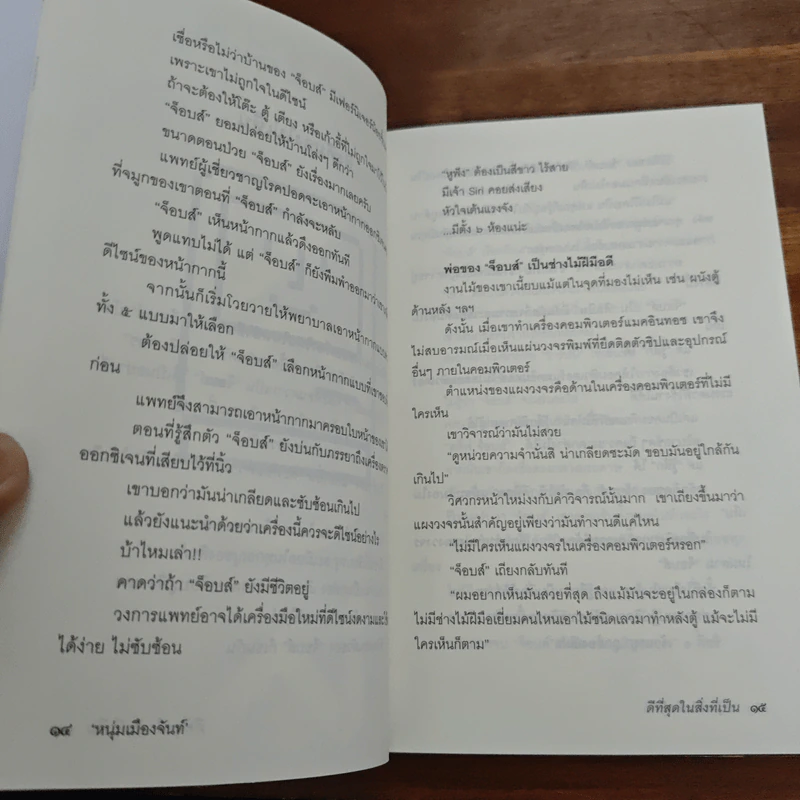 เชื่อหรือไม่ว่าบ้านของ “จ็อบส์” มีเฟอร์นิเจอร์น้อย
เพราะเขาไม่ถูกใจในดีไซน์
ถ้าจะต้องให้โต๊ะ ตู้ เตียง หรือเก้าอี้ที่ไม่ถูกใจมา
“จ็อบส์” ยอมปล่อยให้บ้านโล่งๆ ดีกว่า
ขนาดตอนป่วย “จ็อบส์” ยังเรื่องมากเลยครับ
แพทย์ผู้เชี่ยวชาญโรคปอดจะเอาหน้ากากออกซิเจน
ที่จมูกของเขาตอนที่ “จ็อบส์” กำลังจะหลับ
“จ็อบส์” เห็นหน้ากากแล้วดึงออกทันที
พูดแทบไม่ได้ แต่ “จ็อบส์” ก็ยังพึมพำออกมาว่า
ดีไซน์ของหน้ากากนี้
จากนั้นก็เริ่มโวยวายให้พยาบาลเอาหน้ากาก
ทั้ง ๕ แบบมาให้เลือก
ต้องปล่อยให้ “จ็อบส์” เลือกหน้ากากแบบที่เขา
ก่อน
แพทย์จึงสามารถเอาหน้ากากมาครอบใบหน้าของเขา
ตอนที่รู้สึกตัว “จ็อบส์” ยังบ่นกับภรรยาถึงเครื่อง
ออกซิเจนที่เสียบไว้ที่นิ้ว
เขาบอกว่ามันน่าเกลียดและซับซ้อนเกินไป
แล้วยังแนะนำด้วยว่าเครื่องนี้ควรจะดีไซน์อย่างไร
บ้าไหมเล่า!!
คาดว่าถ้า “จ็อบส์” ยังมีชีวิตอยู่
วงการแพทย์อาจได้เครื่องมือใหม่ที่ดีไซน์งดงามและใช้
ได้ง่าย ไม่ซับซ้อน
๑๔ ‘หนุ่มเมืองจันท์’
“หูฟัง” ต้องเป็นสีขาว ไร้สาย
มีเจ้า Siri คอยส่งเสียง
หัวใจเต้นแรงจัง
...มีตั้ง ๖ ห้องแน่ะ
พ่อของ “จ็อบส์” เป็นช่างไม้ฝีมือดี
งานไม้ของเขาเนี้ยบแม้แต่ในจุดที่มองไม่เห็น เช่น ผนังตู้
ด้านหลัง ฯลฯ
ดังนั้น เมื่อเขาทำเครื่องคอมพิวเตอร์แมคอินทอช เขาจึง
ไม่สบอารมณ์เมื่อเห็นแผ่นวงจรพิมพ์ที่ยึดติดตัวชิปและอุปกรณ์
อื่นๆ ภายในคอมพิวเตอร์
ตำแหน่งของแผงวงจรคือด้านในเครื่องคอมพิวเตอร์ที่ไม่มี
ใครเห็น
เขาวิจารณ์ว่ามันไม่สวย
“ดูหน่วยความจำนั่นสิ น่าเกลียดชะมัด ขอบมันอยู่ใกล้กัน
เกินไป”
วิศวกรหน้าใหม่งงกับคำวิจารณ์นั้นมาก เขาเถียงขึ้นมาว่า
แผงวงจรนั้นสำคัญอยู่เพียงว่ามันทำงานดีแค่ไหน
“ไม่มีใครเห็นแผงวงจรในเครื่องคอมพิวเตอร์หรอก”
“จ็อบส์” เถียงกลับทันที
“ผมอยากเห็นมันสวยที่สุด ถึงแม้มันจะอยู่ในกล่องก็ตาม
ไม่มีช่างไม้ฝีมือเยี่ยมคนไหนเอาไม้ชนิดเลวมาทำหลังตู้ แม้จะไม่มี
ใครเห็นก็ตาม”
ดีที่สุดในสิ่งที่เป็น ๑๕